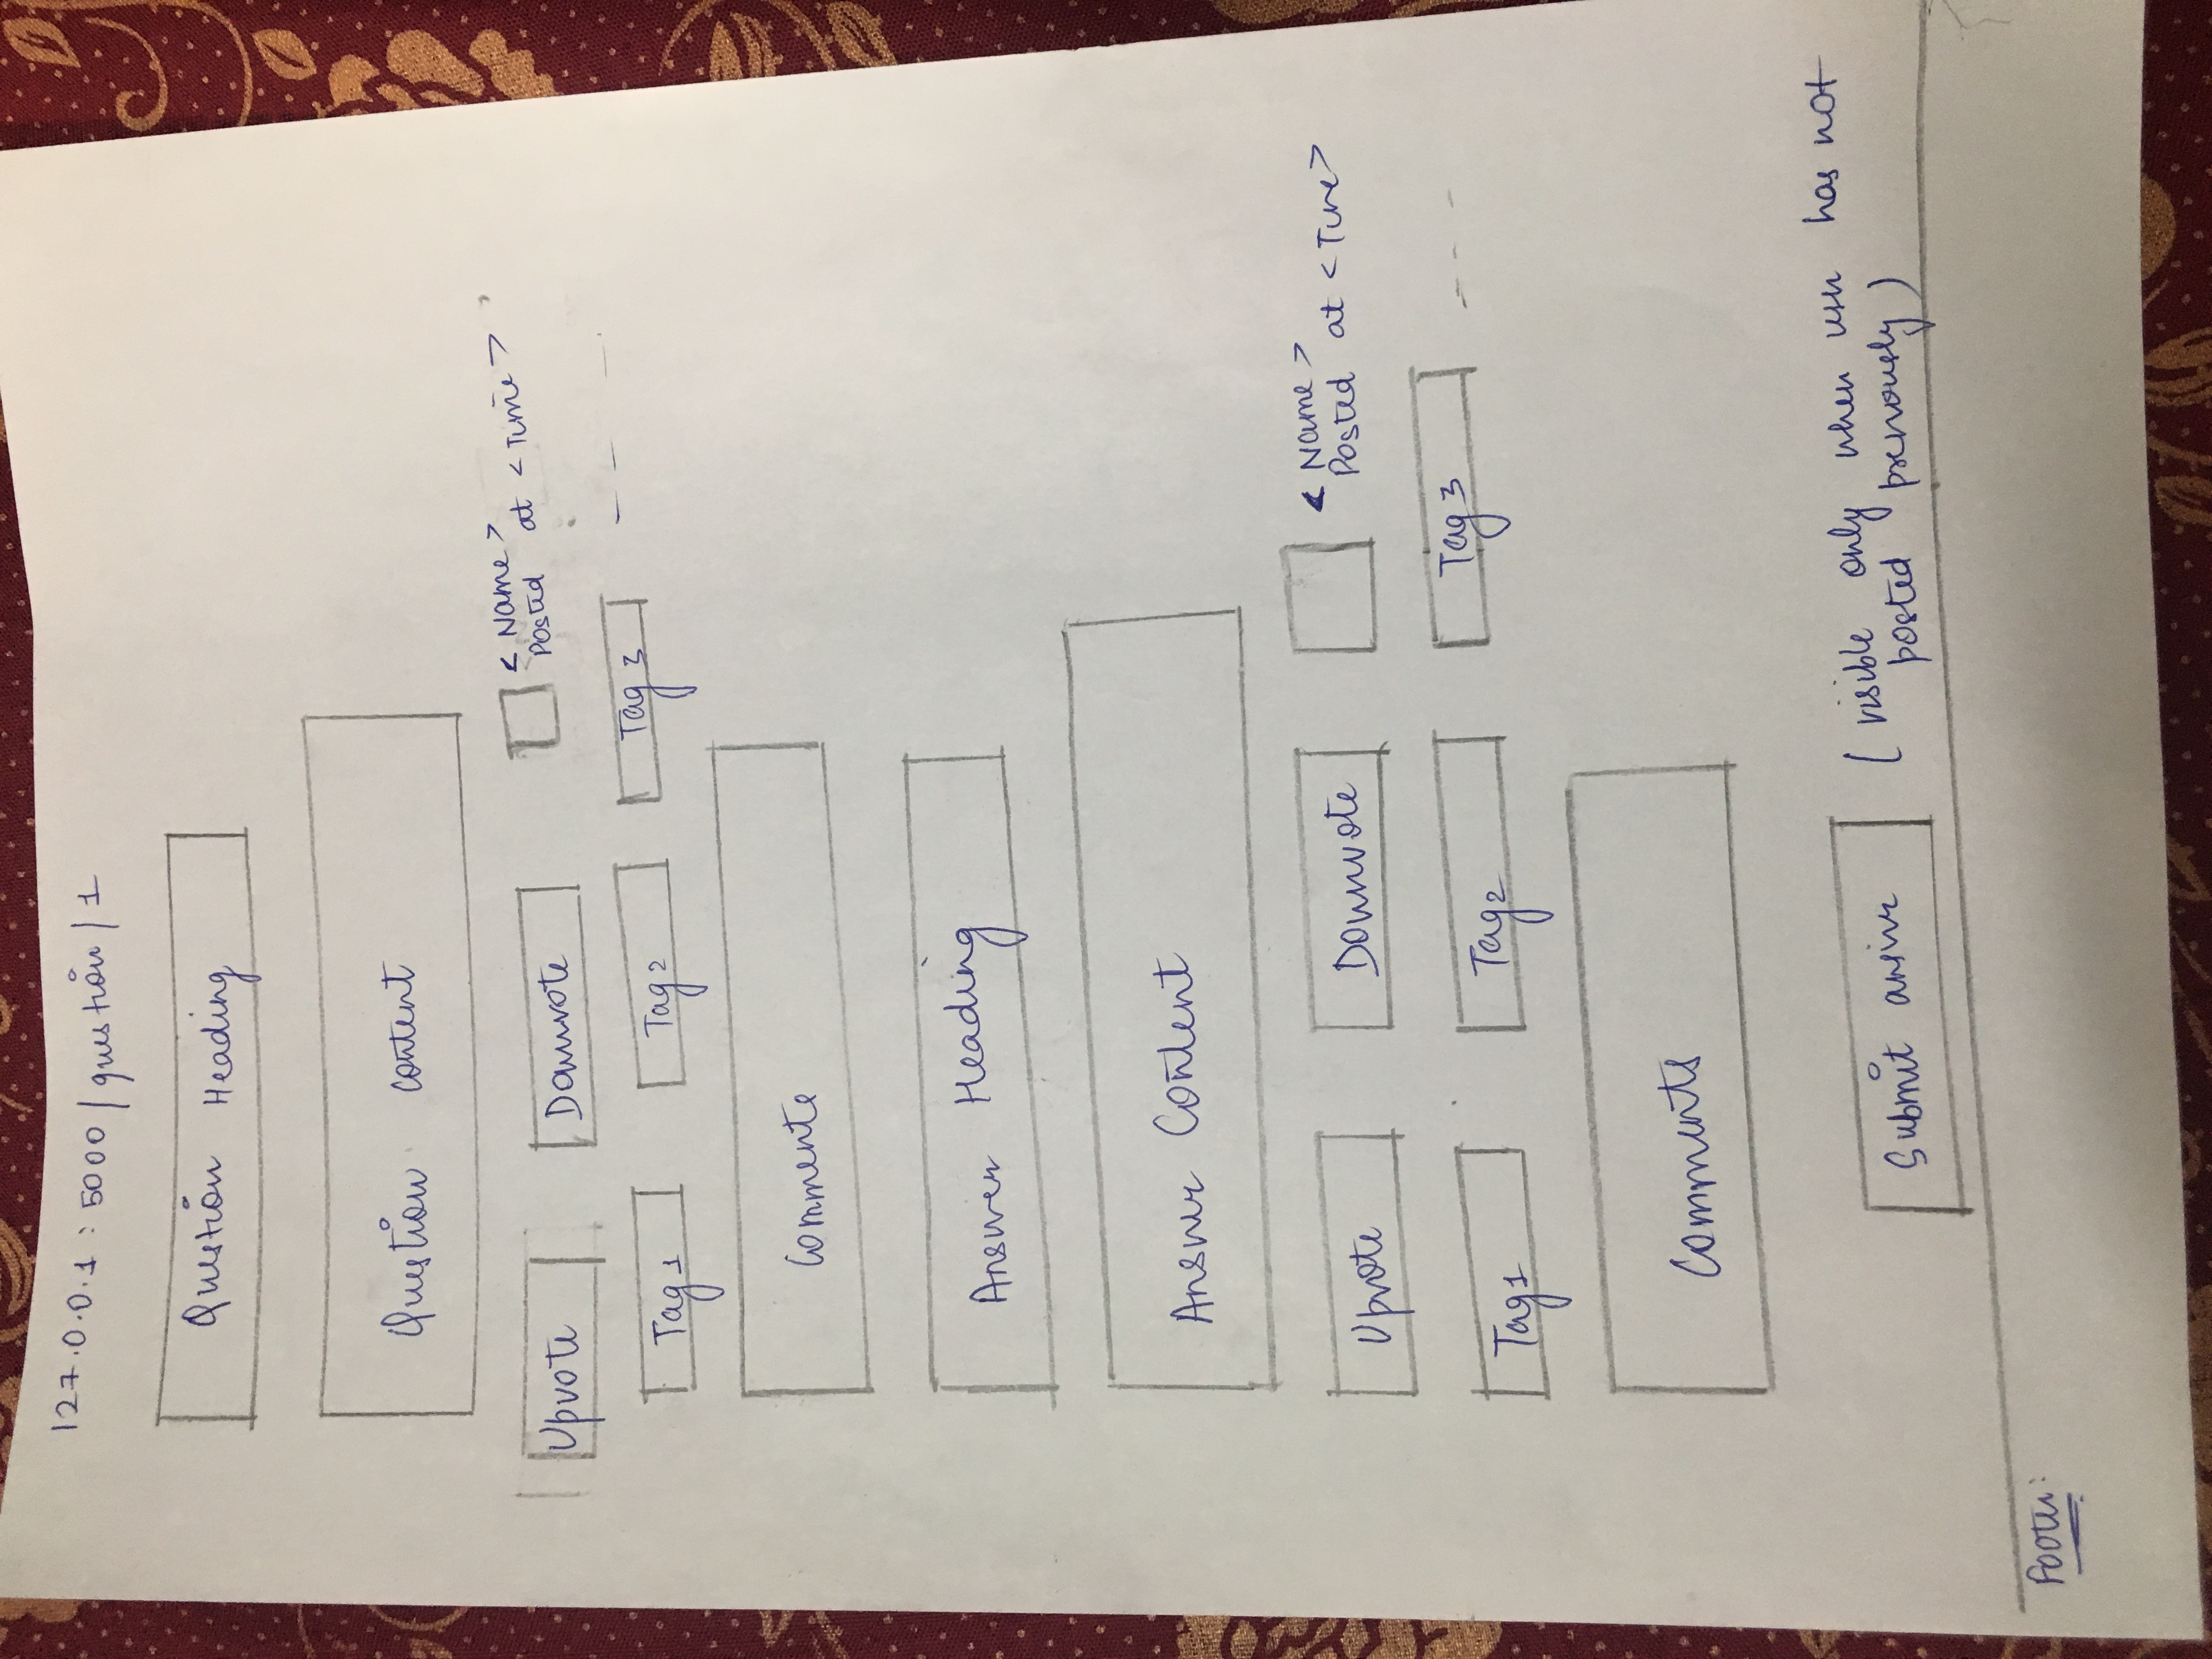 127.0.0.1 : 5000 / question / 1
Question Heading
Question Content
Upvote Downvote < Name >
Posted at < Time >
Tag 1 Tag 2 Tag 3 - - -
Comments
Answer Heading
Answer Content
Upvote Downvote < Name >
Posted at < Time >
Tag 1 Tag 2 Tag 3 - - -
Comments
Submit answer ( visible only when user has not
posted previously )
Footer: